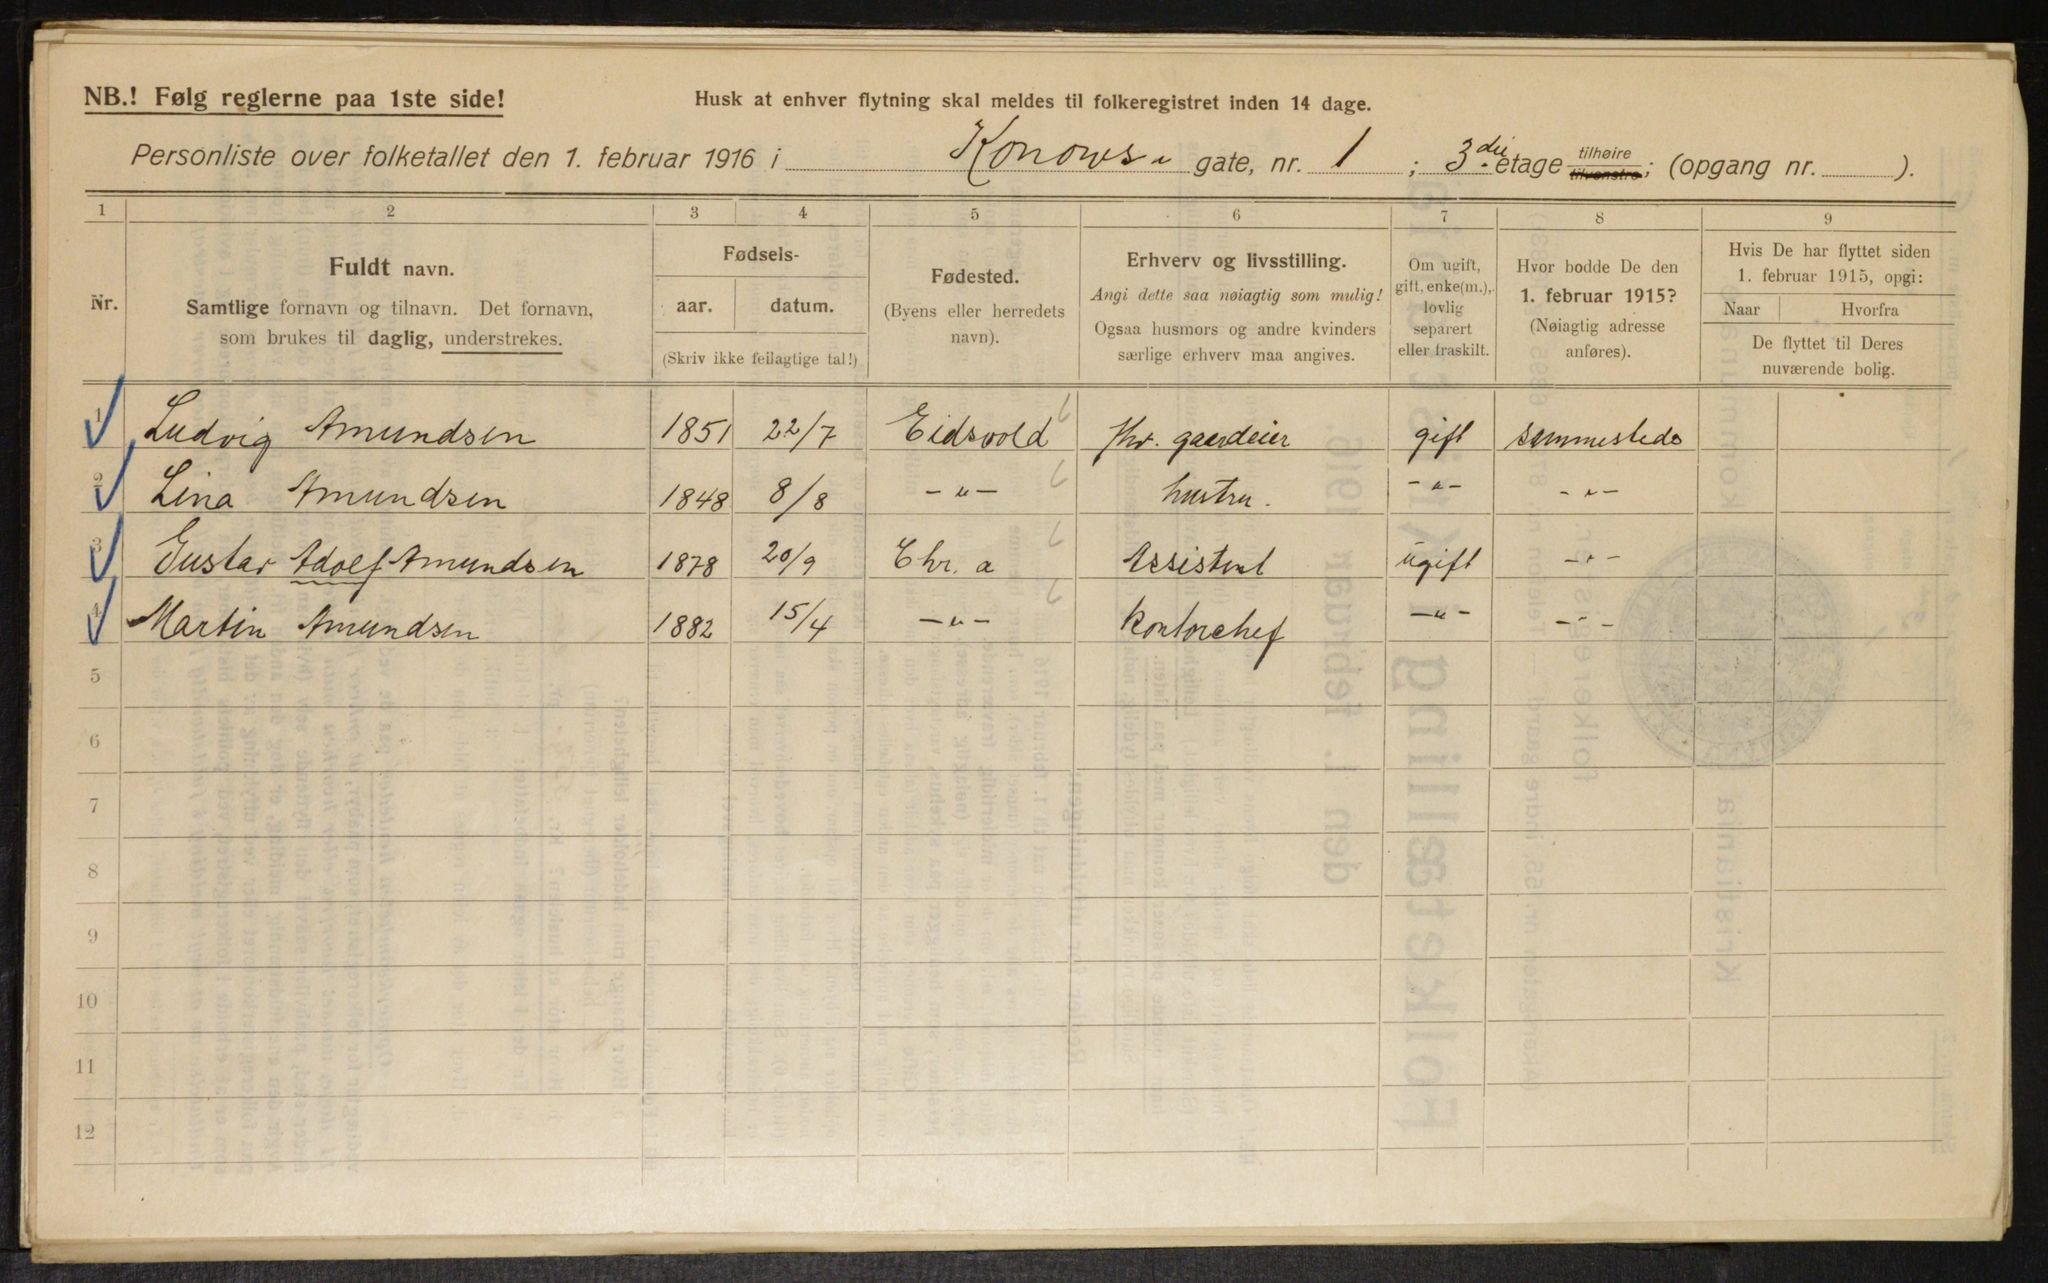 NB.! Følg reglerne paa 1ste side!
Husk at enhver flytning skal meldes til folkeregistret inden 14 dage.
Personliste over folketallet den 1. februar 1916 i Konows " gate, nr. 1 ; 3 die etage tilhøire tilvenstre; (opgang nr. ).
1 2 3 4 5 6 7 8 9
Nr.
Fuldt navn.
Samtlige fornavn og tilnavn. Det fornavn,
som brukes til daglig, understrekes.
Fødsels-
aar. datum.
(Skriv ikke feilagtige tal!)
Fødested.
(Byens eller herredets
navn).
Erhverv og livsstilling.
Angi dette saa nøiagtig som mulig!
Ogsaa husmors og andre kvinders
særlige erhverv maa angives.
Om ugift,
gift, enke(m.),
lovlig
separert
eller fraskilt.
Hvor bodde De den
1. februar 1915?
(Nøiagtig adresse
anføres).
Hvis De har flyttet siden
1. februar 1915, opgi:
Naar Hvorfra
De flyttet til Deres
nuværende bolig.
1 Ludvig Amundsen 1851 22/7 Eidsvold gaardeier gift sammesteds
2 Lina Amundsen 1848 8/8 -"- hustru. -"- -"-
3 Gustav Adolf Amundsen 1878 20/9 Chr. a Assistent ugift -"-
4 Martin Amundsen 1882 15/4 -"- Kontorchef -"- -"-
5
6
7
8
9
10
11
12